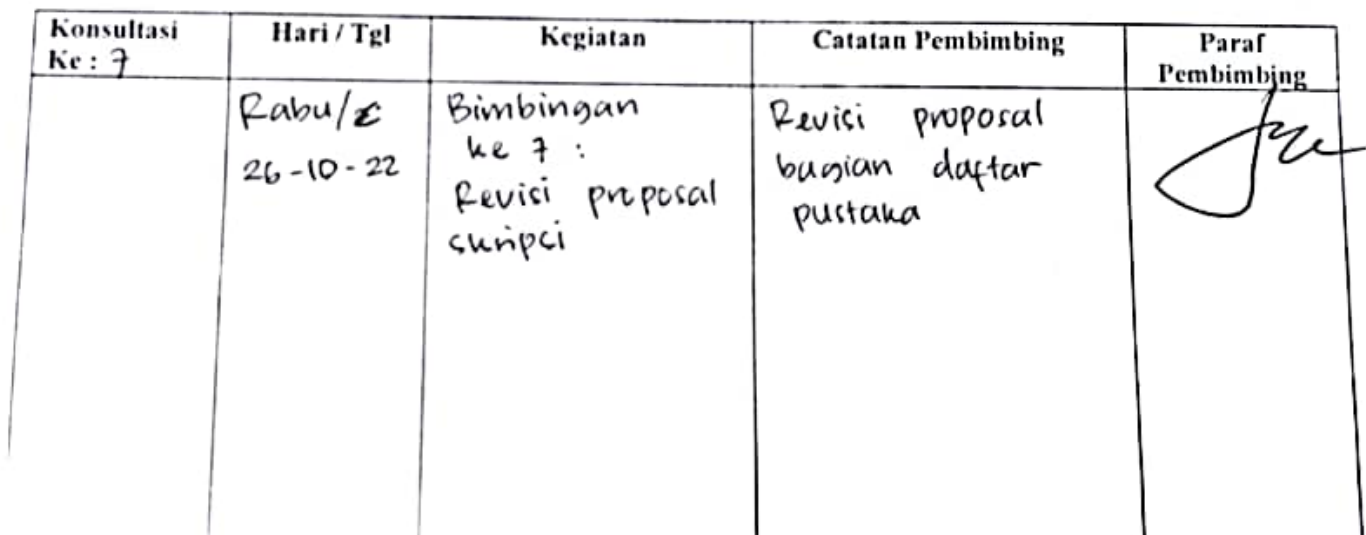 Konsultasi
Ke : 7
Hari / Tgl
Kegiatan
Catatan Pembimbing
Paraf
Pembimbing
Rabu/
26-10-22
Bimbingan
ke 7 :
Revisi proposal
skripsi
Revisi proposal
bagian daftar
pustaka